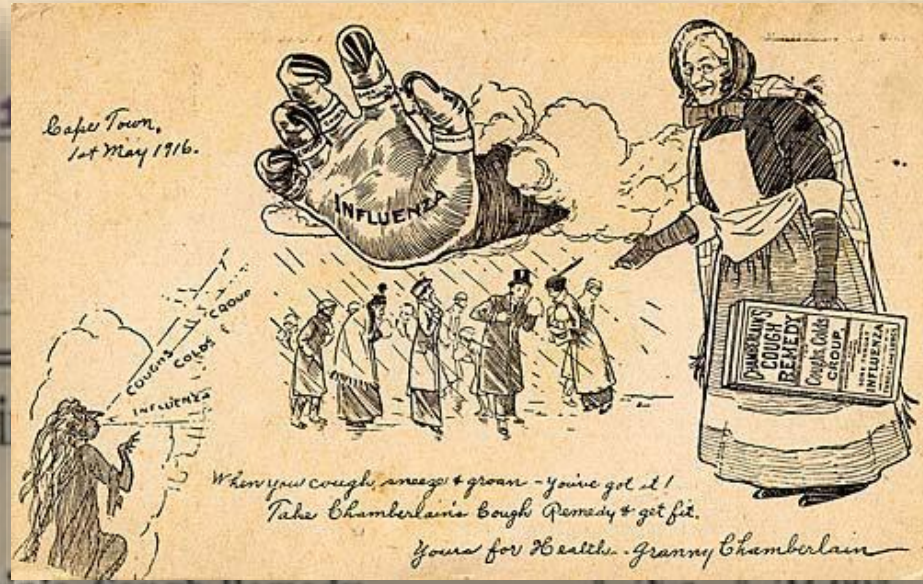 Cape Town,
1st May 1916.
INFLUENZA
COUGHS
COLDS
CROUP
INFLUENZA
CHAMBERLAIN'S
COUGH
REMEDY
Coughs, Colds
CROUP
INFLUENZA
When you cough, sneeze & groan - you've got it!
Take Chamberlain's Cough Remedy & get fit.
Yours for Health - Granny Chamberlain